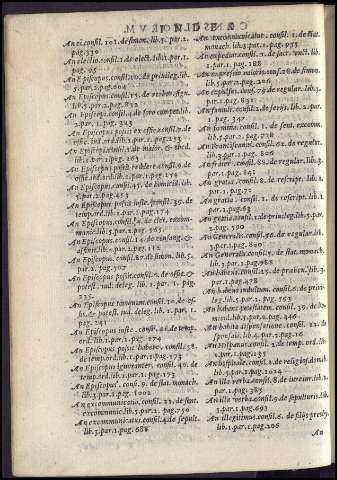 CONSILIORVM.
An ei. consil. 101. de simon. lib. 5. par. 2.
pag. 330
An electio. consil. 1. de elect. lib. 1. par. 1.
pag. 95
An Episcopus. consil. de priuileg. lib.
5. par. 2. pag. 604
An Episcopus. consil. 15. de verbor. sign.
lib. 5. par. 2. pag. 832
An Episcopi consil. 4. de foro compet. lib.
2. par. 1. pag. 323
An Episcopus possit ex offic. consil. 7. de
offic. ind. ord. lib. 1. par. 2. pag. 233
An Episcopi. consil. 2. de maior. & obed.
lib. 1. par. 2. pag. 263
An Episcopus possit reddere. consil. 9. de
offic. ind. ord. lib. 1. par. 2. pag.
An Episcopus. consil. 45. de homicid. lib.
5. par. 2. pag. 453
An Episcopus possit iuste. consil. 39. de
temp. ord. lib. 1. par. 1. pag. 174
An Episcopus. consil. de cler. excom-
munic. lib. 5. par. 2. pag. 565
An Episcopus. consil. 14. de
lib. 1. pag. 112
An Episcopus. consil. 87. de simon. lib. 5.
par. 2. pag. 307
An Episcopus possit. consil. 2. de offic. &
potest. iud. deleg. lib. 1. par. 1. pag.
235.
An Episcopus tantum. consil. 10. de of-
fic. & potest. iud. deleg. lib. 1. par. 1.
pag. 241
An Episcopus iuste. consil. 41. de temp.
ord. lib. 1. par. 1. pag. 174
An Episcopus possit habere. consil. 38.
de temp. ord. lib. 1. par. 1. pag. 173
An Episcopus ignoranter. consil. 40. de
temp. ord. lib. 1. par. 1. pag. 173
An Episcopus. consil. 9. de stat. monach.
lib. 3. par. 1. pag. 1002
An excommunicatio. consil. 22. de sent.
excommunic. lib. 5. par. 2. pag. 750
An excommunicatus. consil. 4. de sepult.
lib. 3. par. 1. pag. 688
An excommunicatus. consil. 1. de stat.
monach. lib. 3. par. 1. pag. 955
An expediat. consil. 2. de pact. lib.
1. par. 1. pag. 288
An expressio maior. consil. 28. de simon.
lib. 5. par. 2. pag.
An expulsus. consil. 79. de regular. lib. 3.
par. 1. pag. 831
An famuli. consil. 2. de feriis. lib. 2. par.
1. pag. 347
An femina. consil. 1. de sent. excom.
lib. 5. par. 2. pag. 778
An Franciscani. consil. 2. de regular. lib.
3. par. 1. pag. 746
An frater. consil. 82. de regular. lib. 3.
par. 1. pag. 841
An gratia. consil. 8. de rescript. lib. 1.
par. 1. pag. 70
An gratia. consil. 1. de rescript. lib. 1.
par. 1. pag. 63
An gratia. consil. 1. de priuileg. lib. 5. par.
2. pag. 590
An Generalis. consil. 36. de regular. lib.
3. par. 1. pag. 800
An Generalis. consil. 5. de stat. monach.
lib. 3. par. 1. pag. 985
An habens. consil. 25. de praeben. lib. 3.
par. 1. pag. 478
An habens indultum. consil. 6. de priui-
leg. lib. 5. par. 2. pag. 593
An habens potestatem. consil. 39. de
lib. 5. par. 2. pag. 446
An habita dispensatione. consil. 22. de
sponsal. lib. 4. par. 2. pag. 16
An hispanus. consil. 2. de temp. ord. lib.
1. par. 1. pag. 135
An hospitale. consil. 2. de religios. domib.
lib. 3. par. 1. pag. 1024
An illa verba. consil. 8. de iureiur. lib. 2.
par. 1. pag. 385
An illa verba. consil. 9. de sepulturis. lib.
3. par. 1. pag. 693
An illegitimus. consil. 6. de filijs presby.
lib. 1. par. 1. pag. 206
An